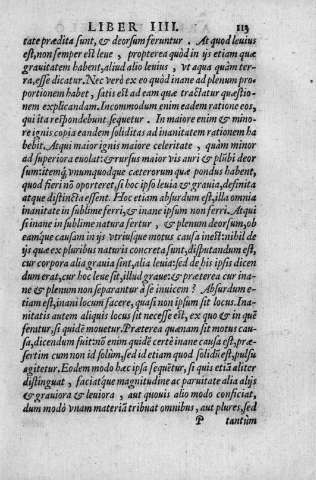 LIBER IIII. 113
tate prædita sunt, & deorsum feruntur. At quod leuius
est, non semper est leue, propterea quòd in ijs etiam quæ
grauitatem habent, aliud alio leuius, vt aqua quàm ter-
ra, esse dicatur. Nec verò ex eo quòd inane ad plenum pro-
portionem habet, satis est ad eam quæ tractatur quæstio-
nem explicandam. Incommodum enim eadem ratione eos,
qui ita respōdebunt, sequetur. In maiore enim & mino-
re ignis copia eandem soliditas ad inanitatem rationem ha
bebit. Atqui maior ignis maiore celeritate, quàm minor
ad superiora euolat: & rursus maior vis auri & plūbi deor
sum: itemq́; vnumquodque cæterorum quæ pondus habent,
quod fieri nō oporteret, si hoc ipso leuia & grauia, definita
atque distincta essent. Hoc etiam absurdum est, illa omnia
inanitate in sublime ferri, & inane ipsum non ferri. Atqui
si inane in sublime natura fertur, & plenum deorsum, ob
eamque causam in ijs vtriusque motus causa inest: nihil de
ijs quæ ex pluribus naturis concreta sunt, disputandum est,
cur corpora alia grauia sint, alia leuia: sed de his ipsis dicen
dum erat, cur hoc leue sit, illud graue: & præterea cur ina-
ne & plenum non separantur à se inuicem? Absurdum e-
tiam est, inani locum facere, quasi non ipsum sit locus. Ina-
nitatis autem aliquis locus sit necesse est, ex quo & in quē
feratur, si quidē mouetur. Præterea quænam sit motus cau-
sa, dicendum fuit: nō enim quidē certè inane causa est, præ-
sertim cum non id solùm, sed id etiam quod solidū est, pulsu
agitetur. Eodem modo hæc ipsa sequētur, si quis etiā aliter
distinguat, faciatq́ue magnitudine ac paruitate alia alijs
& grauiora & leuiora, aut quouis alio modo conficiat,
dum modò vnam materiā tribuat omnibus, aut plures, sed
P tantùm